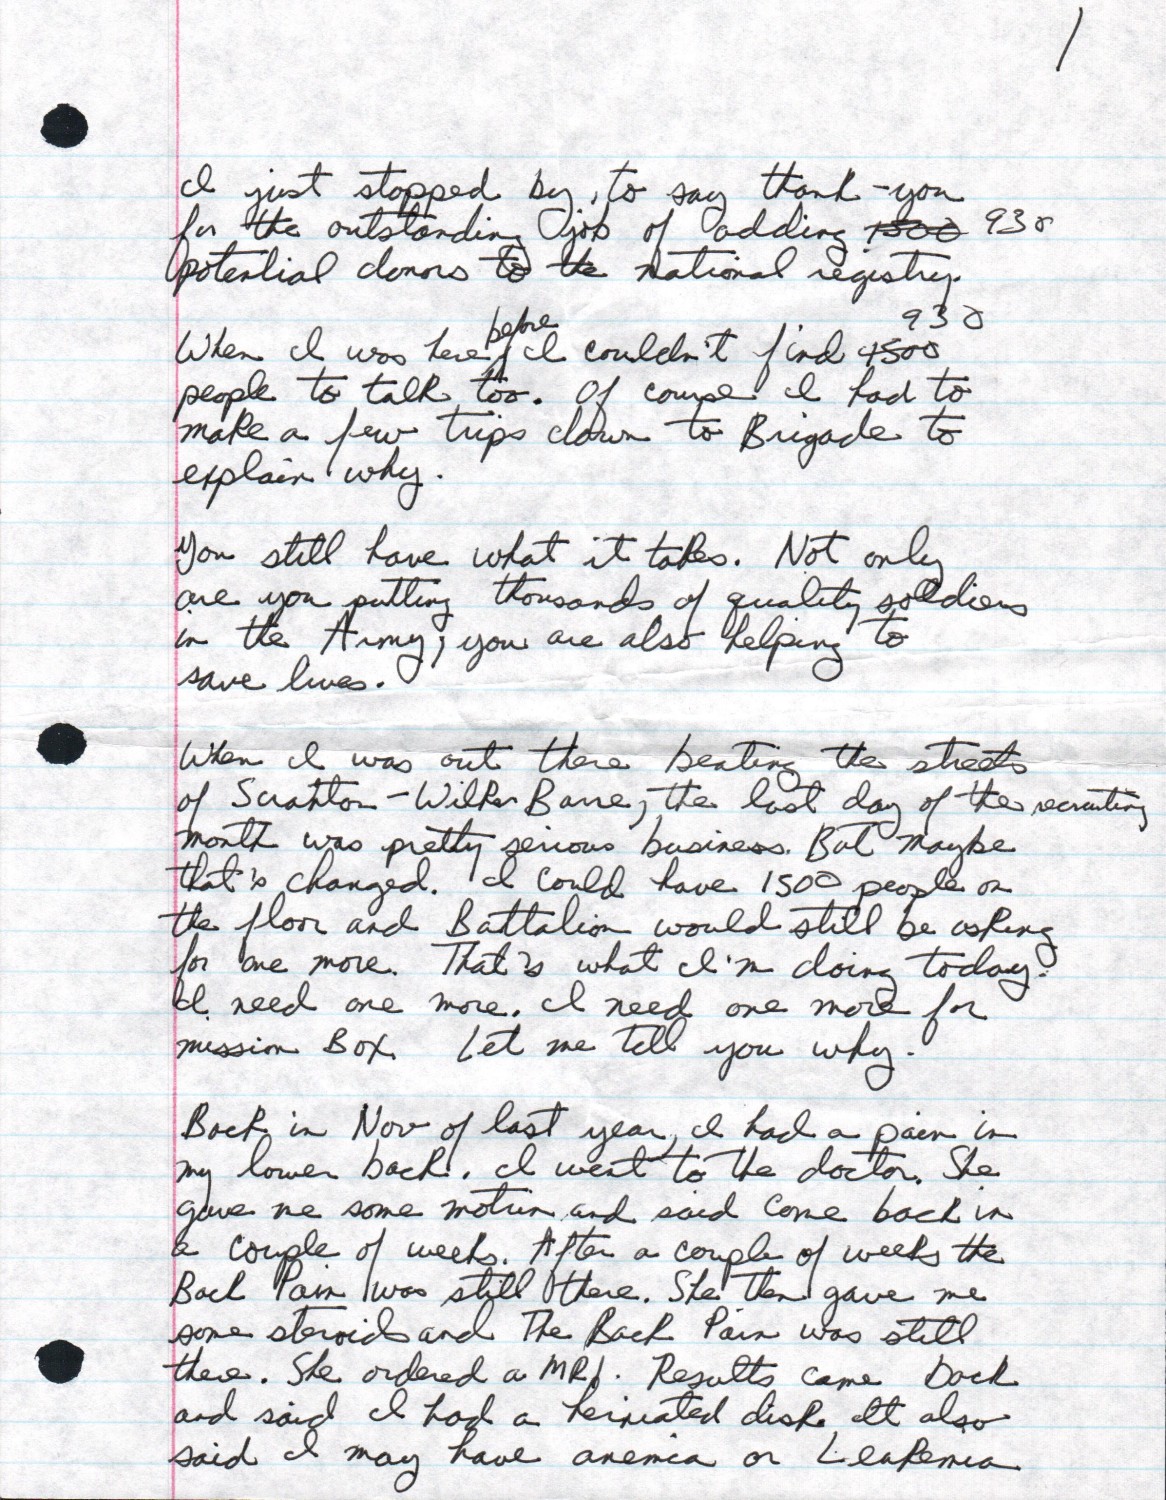 1
I just stopped by, to say thank-you
for the outstanding job of adding 1500 930
potential donors to the national registry.
930
before
When I was here I couldn't find 1500
people to talk too. Of course I had to
make a few trips down to Brigade to
explain why.
You still have what it takes. Not only
are you putting thousands of quality soldiers
in the Army, you are also helping to
save lives.
When I was out there beating the streets
of Scranton-Wilkes Barre, the last day of the recruiting
month was pretty serious business. But maybe
that's changed. I could have 1500 people on
the floor and Battalion would still be asking
for one more. That's what I'm doing today.
I need one more. I need one more for
mission Box. Let me tell you why.
Back in Nov of last year, I had a pain in
my lower back. I went to the doctor. She
gave me some motrin and said come back in
a couple of weeks. After a couple of weeks the
Back Pain was still there. She then gave me
some steroids and The Back Pain was still
there. She ordered a MRI. Results came back
and said I had a herniated disk. It also
said I may have anemia or Leukemia